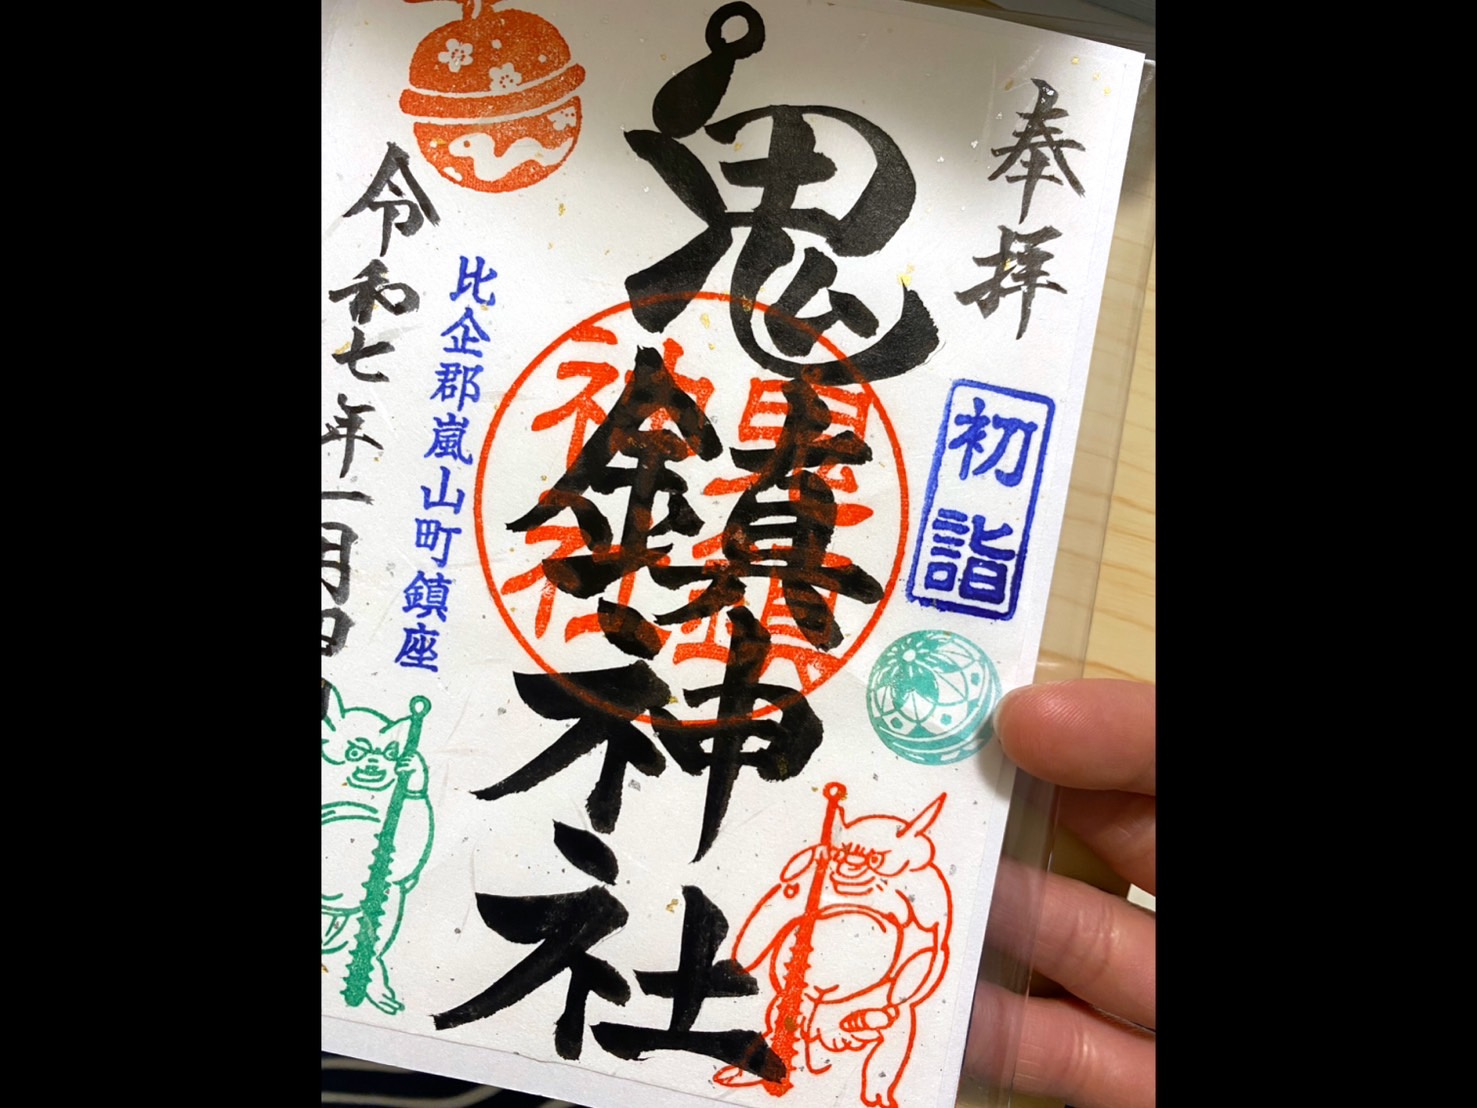 奉拝
初詣
鬼鎮神社
鬼鎮
神社
比企郡嵐山町鎮座
令和七年一月